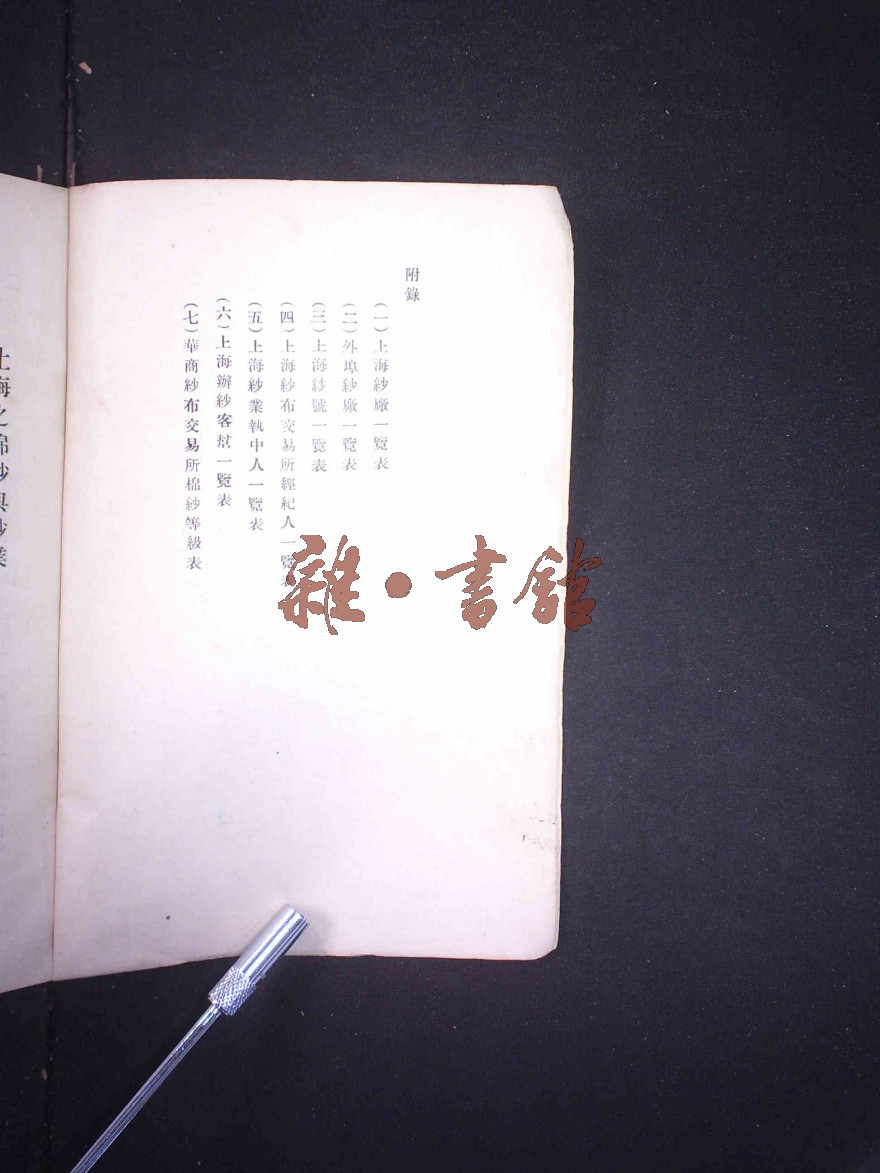 附錄
(一)上海紗廠一覽表
(二)外埠紗廠一覽表
(三)上海紗號一覽表
(四)上海紗布交易所經紀人一覽表
(五)上海紗業執中人一覽表
(六)上海辦紗客幫一覽表
(七)華商紗布交易所棉紗等級表
上海之棉紗與紗業
雜·書館